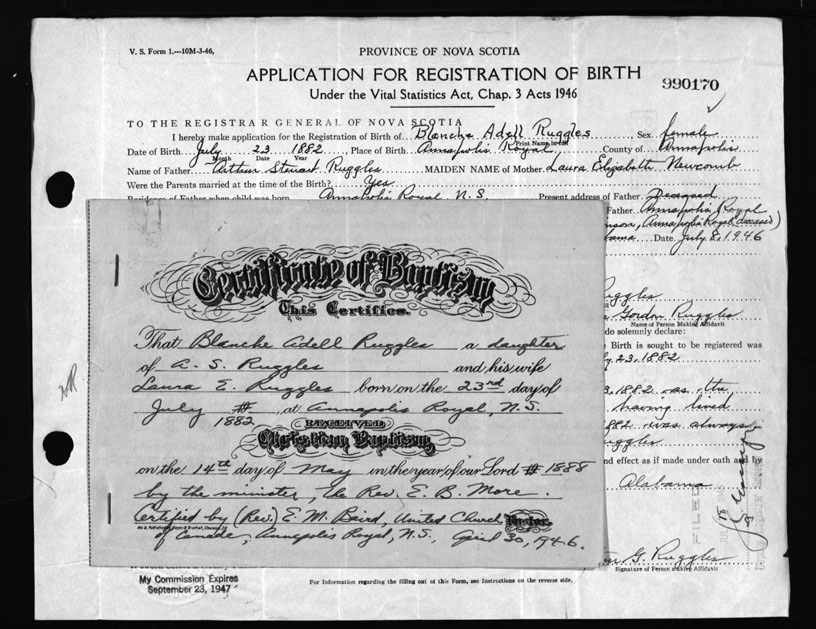 V. S. Form 1.—10M-3-46.
PROVINCE OF NOVA SCOTIA
APPLICATION FOR REGISTRATION OF BIRTH
Under the Vital Statistics Act, Chap. 3 Acts 1946
990170
TO THE REGISTRAR GENERAL OF NOVA SCOTIA
I hereby make application for the Registration of Birth of Blanche Adell Ruggles, Sex female
Print Name in full
Date of Birth July 23 1882, Place of Birth Annapolis Royal County of Annapolis
Month Date Year
Name of Father Arthur Stewart Ruggles MAIDEN NAME of Mother Laura Elizabeth Newcomb
Were the Parents married at the time of the Birth? Yes
Residence of Father when child was born Annapolis Royal N. S. Present address of Father Deceased
Father Annapolis Royal
Annapolis Royal (deceased)
Date July 8, 1946
Certificate of Baptism
This Certifies.
That Blanche Adell Ruggles a daughter
of A. S. Ruggles and his wife
Laura E. Ruggles born on the 23rd day of
July 1882 at Annapolis Royal, N.S.
RECEIVED
Christian Baptism
on the 14th day of May in the year of our Lord 1888
by the minister, the Rev. E. B. More.
Certified by (Rev.) E. M. Baird, United Church
of Canada, Annapolis Royal, N.S., April 30, 1946.
Ruggles
Gordon Ruggles
Name of Person Making Affidavit
do solemnly declare:
Birth is sought to be registered was
23, 1882
1882 was the
having lived
1882 was always
Ruggles
nd effect as if made under oath and by
Alabama
FILED
G. Ruggles
Signature of Person Making Affidavit
My Commission Expires
September 23, 1947
For Information regarding the filling out of this Form, see Instructions on the reverse side.